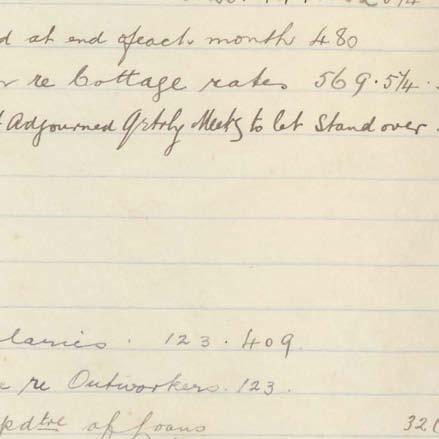 d at end of each month 480
re Cottage rates 569.574.
Adjourned Qrtrly Meetg to let Stand over.
laries. 123.409.
e re Outworkers. 123.
pdtre of Loans 32